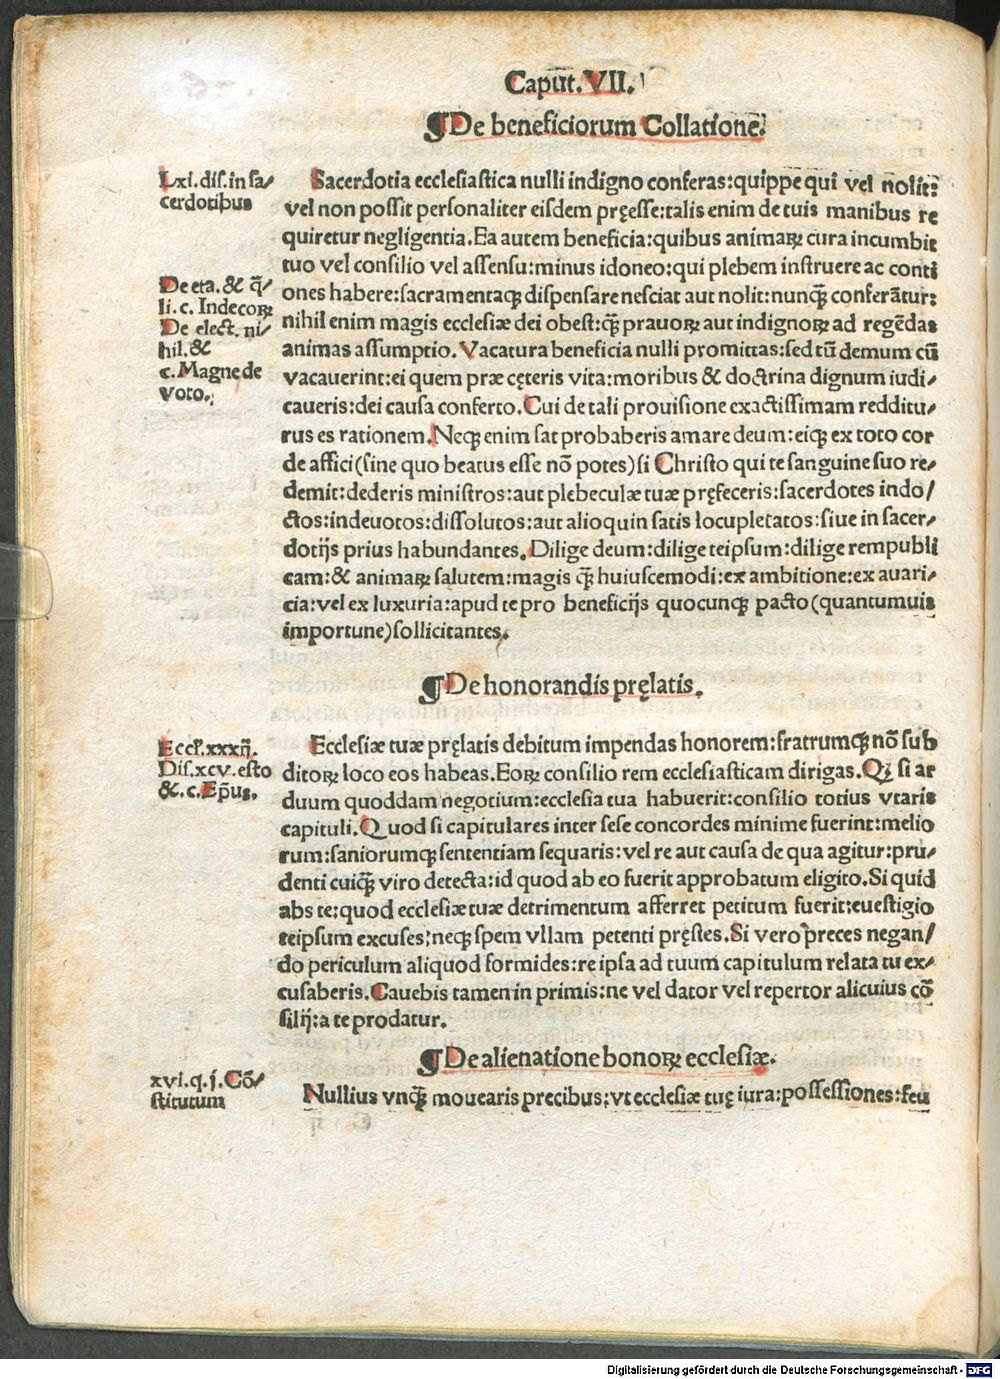 Capūt. VII.
¶De beneficiorum Collatione.
Lxi. dis. in sa/
cerdotibus
Sacerdotia ecclesiastica nulli indigno conferas: quippe qui vel nolit:
vel non possit personaliter eisdem pręesse: talis enim de tuis manibus re
quiretur negligentia. Ea autem beneficia: quibus animaꝝ cura incumbit
tuo vel consilio vel assensu: minus idoneo: qui plebem instruere ac conti
De eta. & q̄/
li. c. Indecoꝝ
De elect. ni/
hil. &
c. Magnę de
voto.
ones habere: sacramentaqꝫ dispensare nesciat aut nolit: nunqꝫ̄ conferātur:
nihil enim magis ecclesiæ dei obest: qꝫ̄ prauoꝝ aut indignoꝝ ad regēdas
animas assumptio. Vacatura beneficia nulli promittas: sed tū demum cū
vacauerint: ei quem præ cęteris vita: moribus & doctrina dignum iudi/
caueris: dei causa conferto. Cui de tali prouisione exactissimam redditu/
rus es rationem. Neqꝫ enim sat probaberis amare deum: eiqꝫ ex toto cor
de affici (sine quo beatus esse nō potes) si Christo qui te sanguine suo re/
demit: dederis ministros: aut plebeculæ tuæ pręfeceris: sacerdotes indo/
ctos: indeuotos: dissolutos: aut alioquin satis locupletatos: siue in sacer/
dotijs prius habundantes. Dilige deum: dilige teipsum: dilige rempubli
cam: & animaꝝ salutem: magis qꝫ̄ huiuscemodi: ex ambitione: ex auari/
cia: vel ex luxuria: apud te pro beneficijs quocunqꝫ pacto (quantumuis
importune) sollicitantes.
¶De honorandis pręlatis.
Eccl'. xxxij.
Dis. xcv. esto
&. c. Ep̄us.
Ecclesiæ tuæ pręlatis debitum impendas honorem: fratrumqꝫ nō sub
ditoꝝ loco eos habeas. Eoꝝ consilio rem ecclesiasticam dirigas. Qꝫ si ar
duum quoddam negotium: ecclesia tua habuerit: consilio totius vtaris
capituli. Quod si capitulares inter sese concordes minime fuerint: melio
rum: saniorumqꝫ sententiam sequaris: vel re aut causa de qua agitur: pru/
denti cuiqꝫ̄ viro detecta: id quod ab eo fuerit approbatum eligito. Si quid
abs te: quod ecclesiæ tuæ detrimentum afferret petitum fuerit: euestigio
teipsum excuses: neqꝫ spem vllam petenti pręstes. Si vero preces negan/
do periculum aliquod formides: re ipsa ad tuum capitulum relata tu ex/
cusaberis. Cauebis tamen in primis: ne vel dator vel repertor alicuius cō
silij: a te prodatur.
¶De alienatione bonoꝝ ecclesiæ.
xvi. q. j. Cō/
stitutum
Nullius vnqꝫ̄ mouearis precibus: vt ecclesiæ tuę iura: possessiones: feu
Digitalisierung gefördert durch die Deutsche Forschungsgemeinschaft - DFG